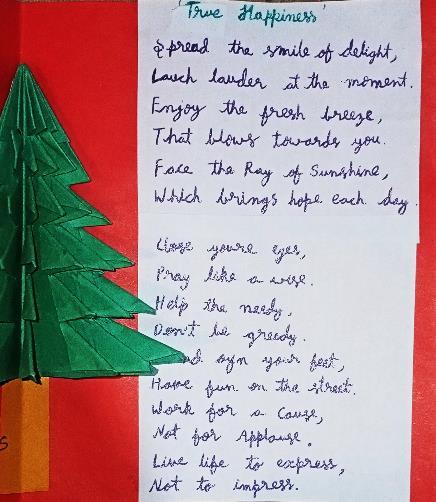 'True Happiness'
Spread the smile of delight,
Lauch lauder at the moment.
Enjoy the fresh breeze,
That blows towards you.
Face the Ray of Sunshine,
Which brings hope each day.
Close youre eyes,
Pray like a wise.
Help the needy,
Don't be greedy.
your feet,
Have fun on the street.
Work for a Cause,
Not for Applause.
Live life to express,
Not to impress.
S